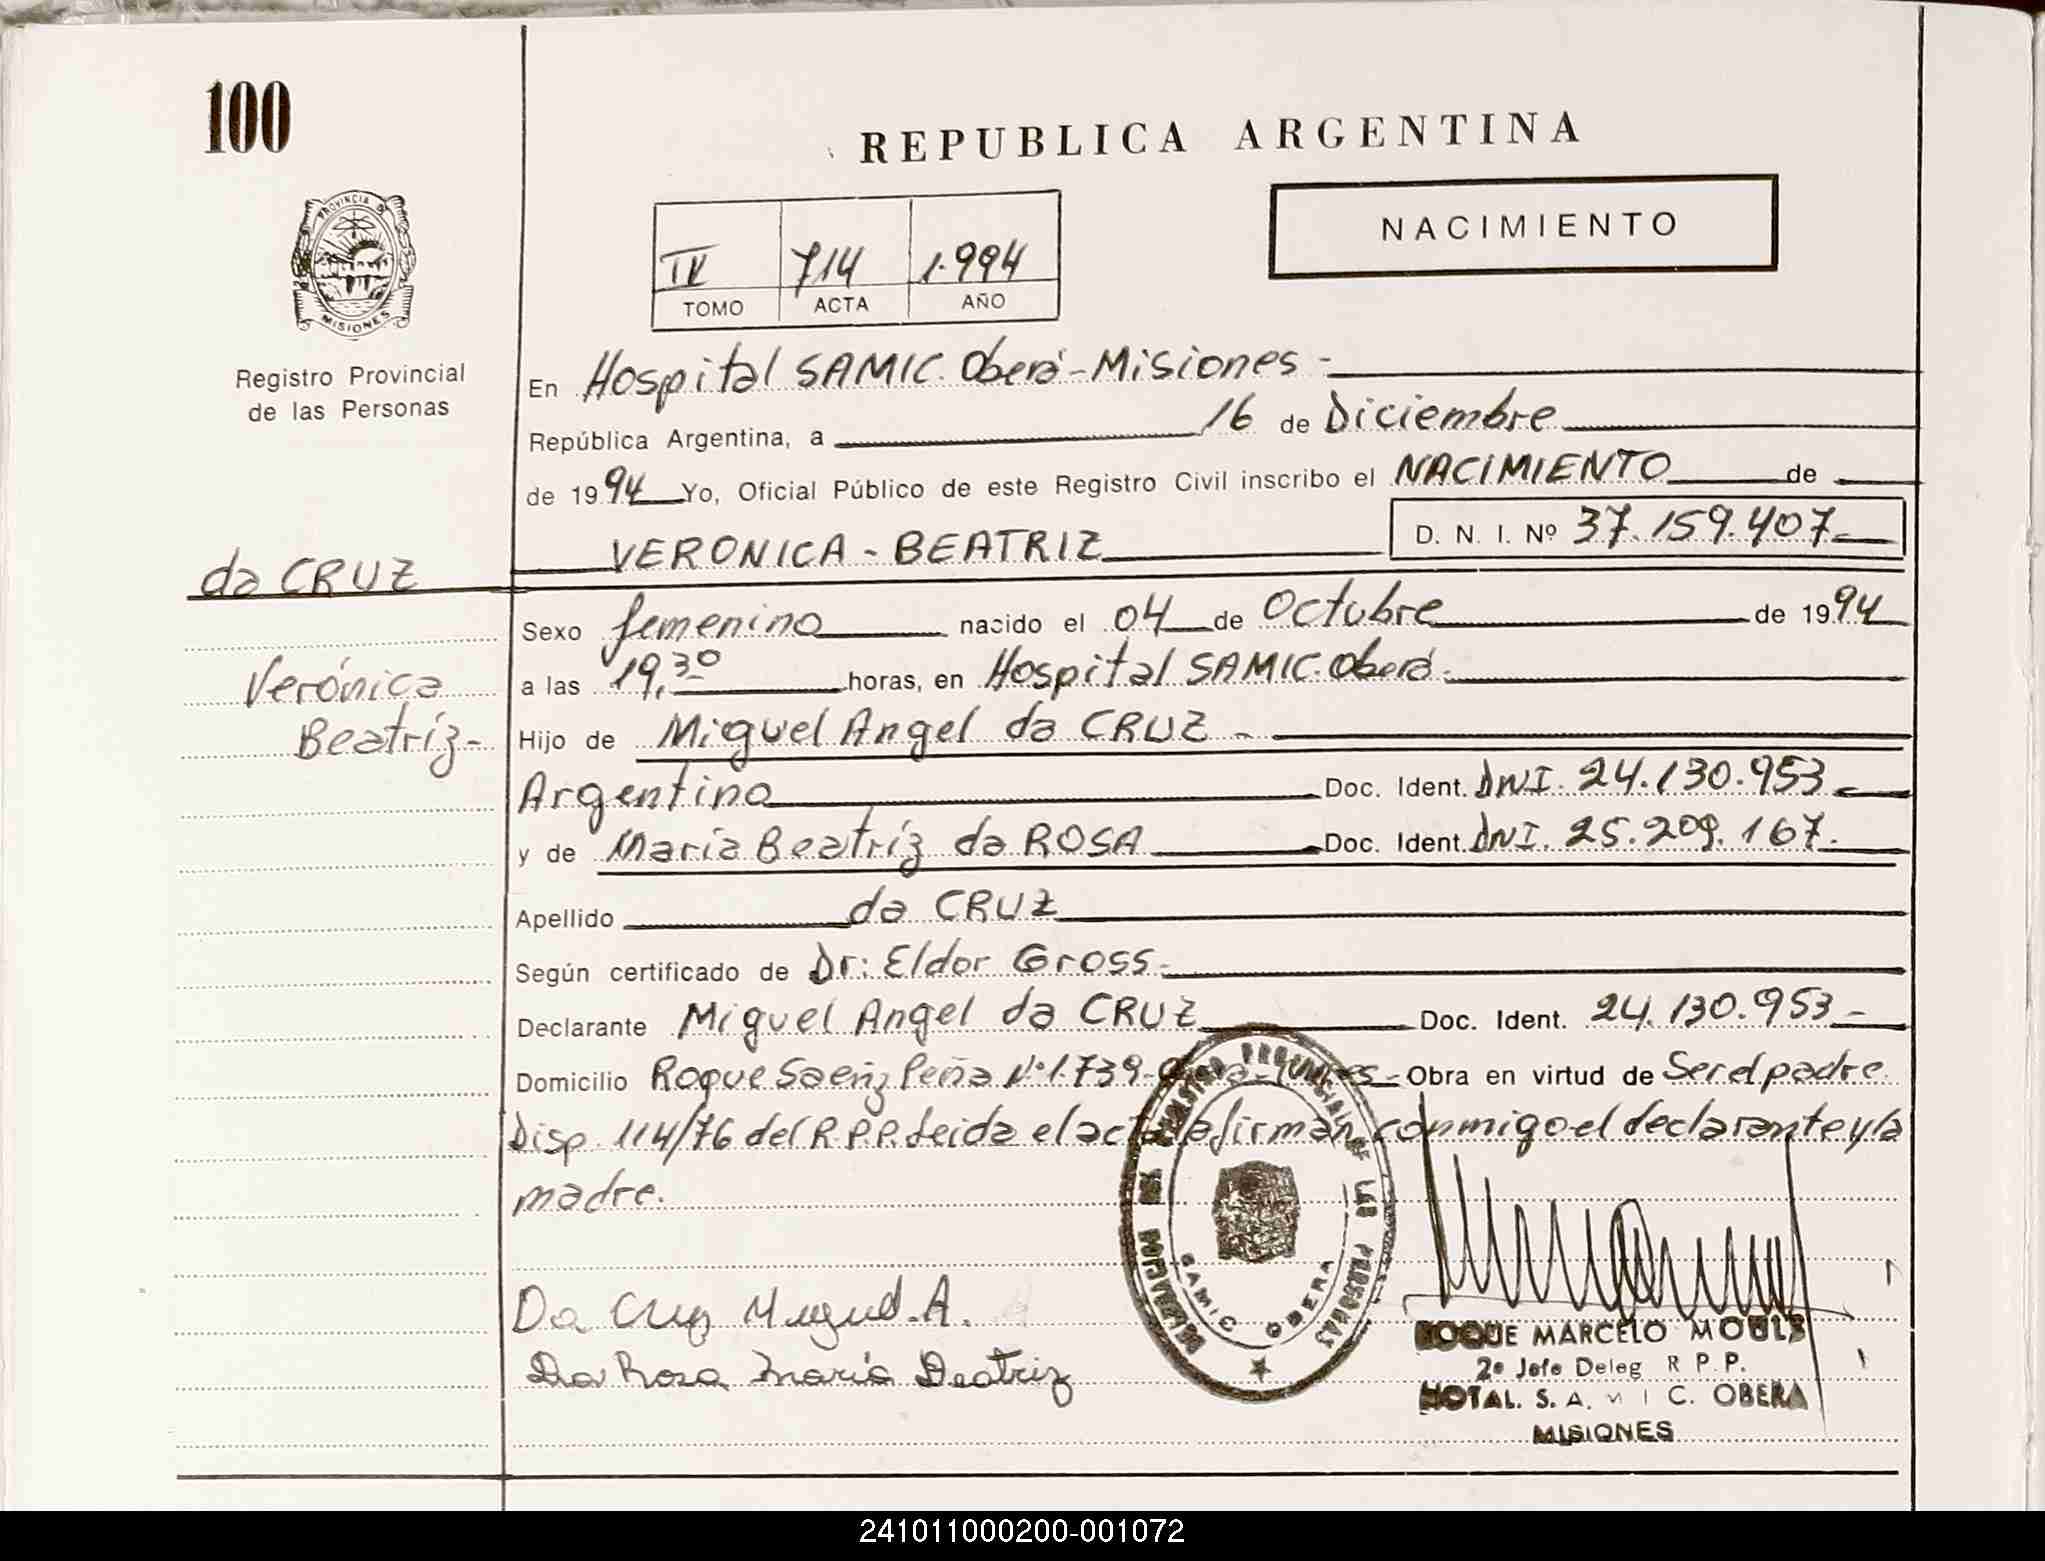 100
REPUBLICA ARGENTINA
PROVINCIA DE
MISIONES
Registro Provincial
de las Personas
NACIMIENTO
IV 714 1.994
TOMO ACTA AÑO
En Hospital SAMIC. Oberá-Misiones-
República Argentina, a 16 de Diciembre
de 1994 Yo, Oficial Público de este Registro Civil inscribo el NACIMIENTO de
VERONICA-BEATRIZ D. N. I. Nº 37.159.407-
da CRUZ
Verónica
Beatríz-
Sexo femenino nacido el 04 de Octubre de 1994
a las 19,30 horas, en Hospital SAMIC. Oberá.
Hijo de Miguel Angel da CRUZ-
Argentino Doc. Ident. DNI. 24.130.953-
y de María Beatríz da ROSA Doc. Ident. DNI. 25.209.167.
Apellido da CRUZ
Según certificado de Dr: Eldor Gross-
Declarante Miguel Angel da CRUZ Doc. Ident. 24.130.953-
Domicilio Roque Saenz Peña Nº1.739- Obra en virtud de Ser el padre
Disp. 114/76 del R.P.P. Leida el acta firman conmigo el declarante y la
madre.
Da Cruz Miguel. A.
Da Rosa María Beatriz
DELEGACION DEL REGISTRO PROVINCIAL DE LAS PERSONAS
SAMIC OBERA
ROQUE MARCELO
2º Jefe Deleg R P.P.
HOTAL. S. A. M I C. OBERA
MISIONES
241011000200-001072